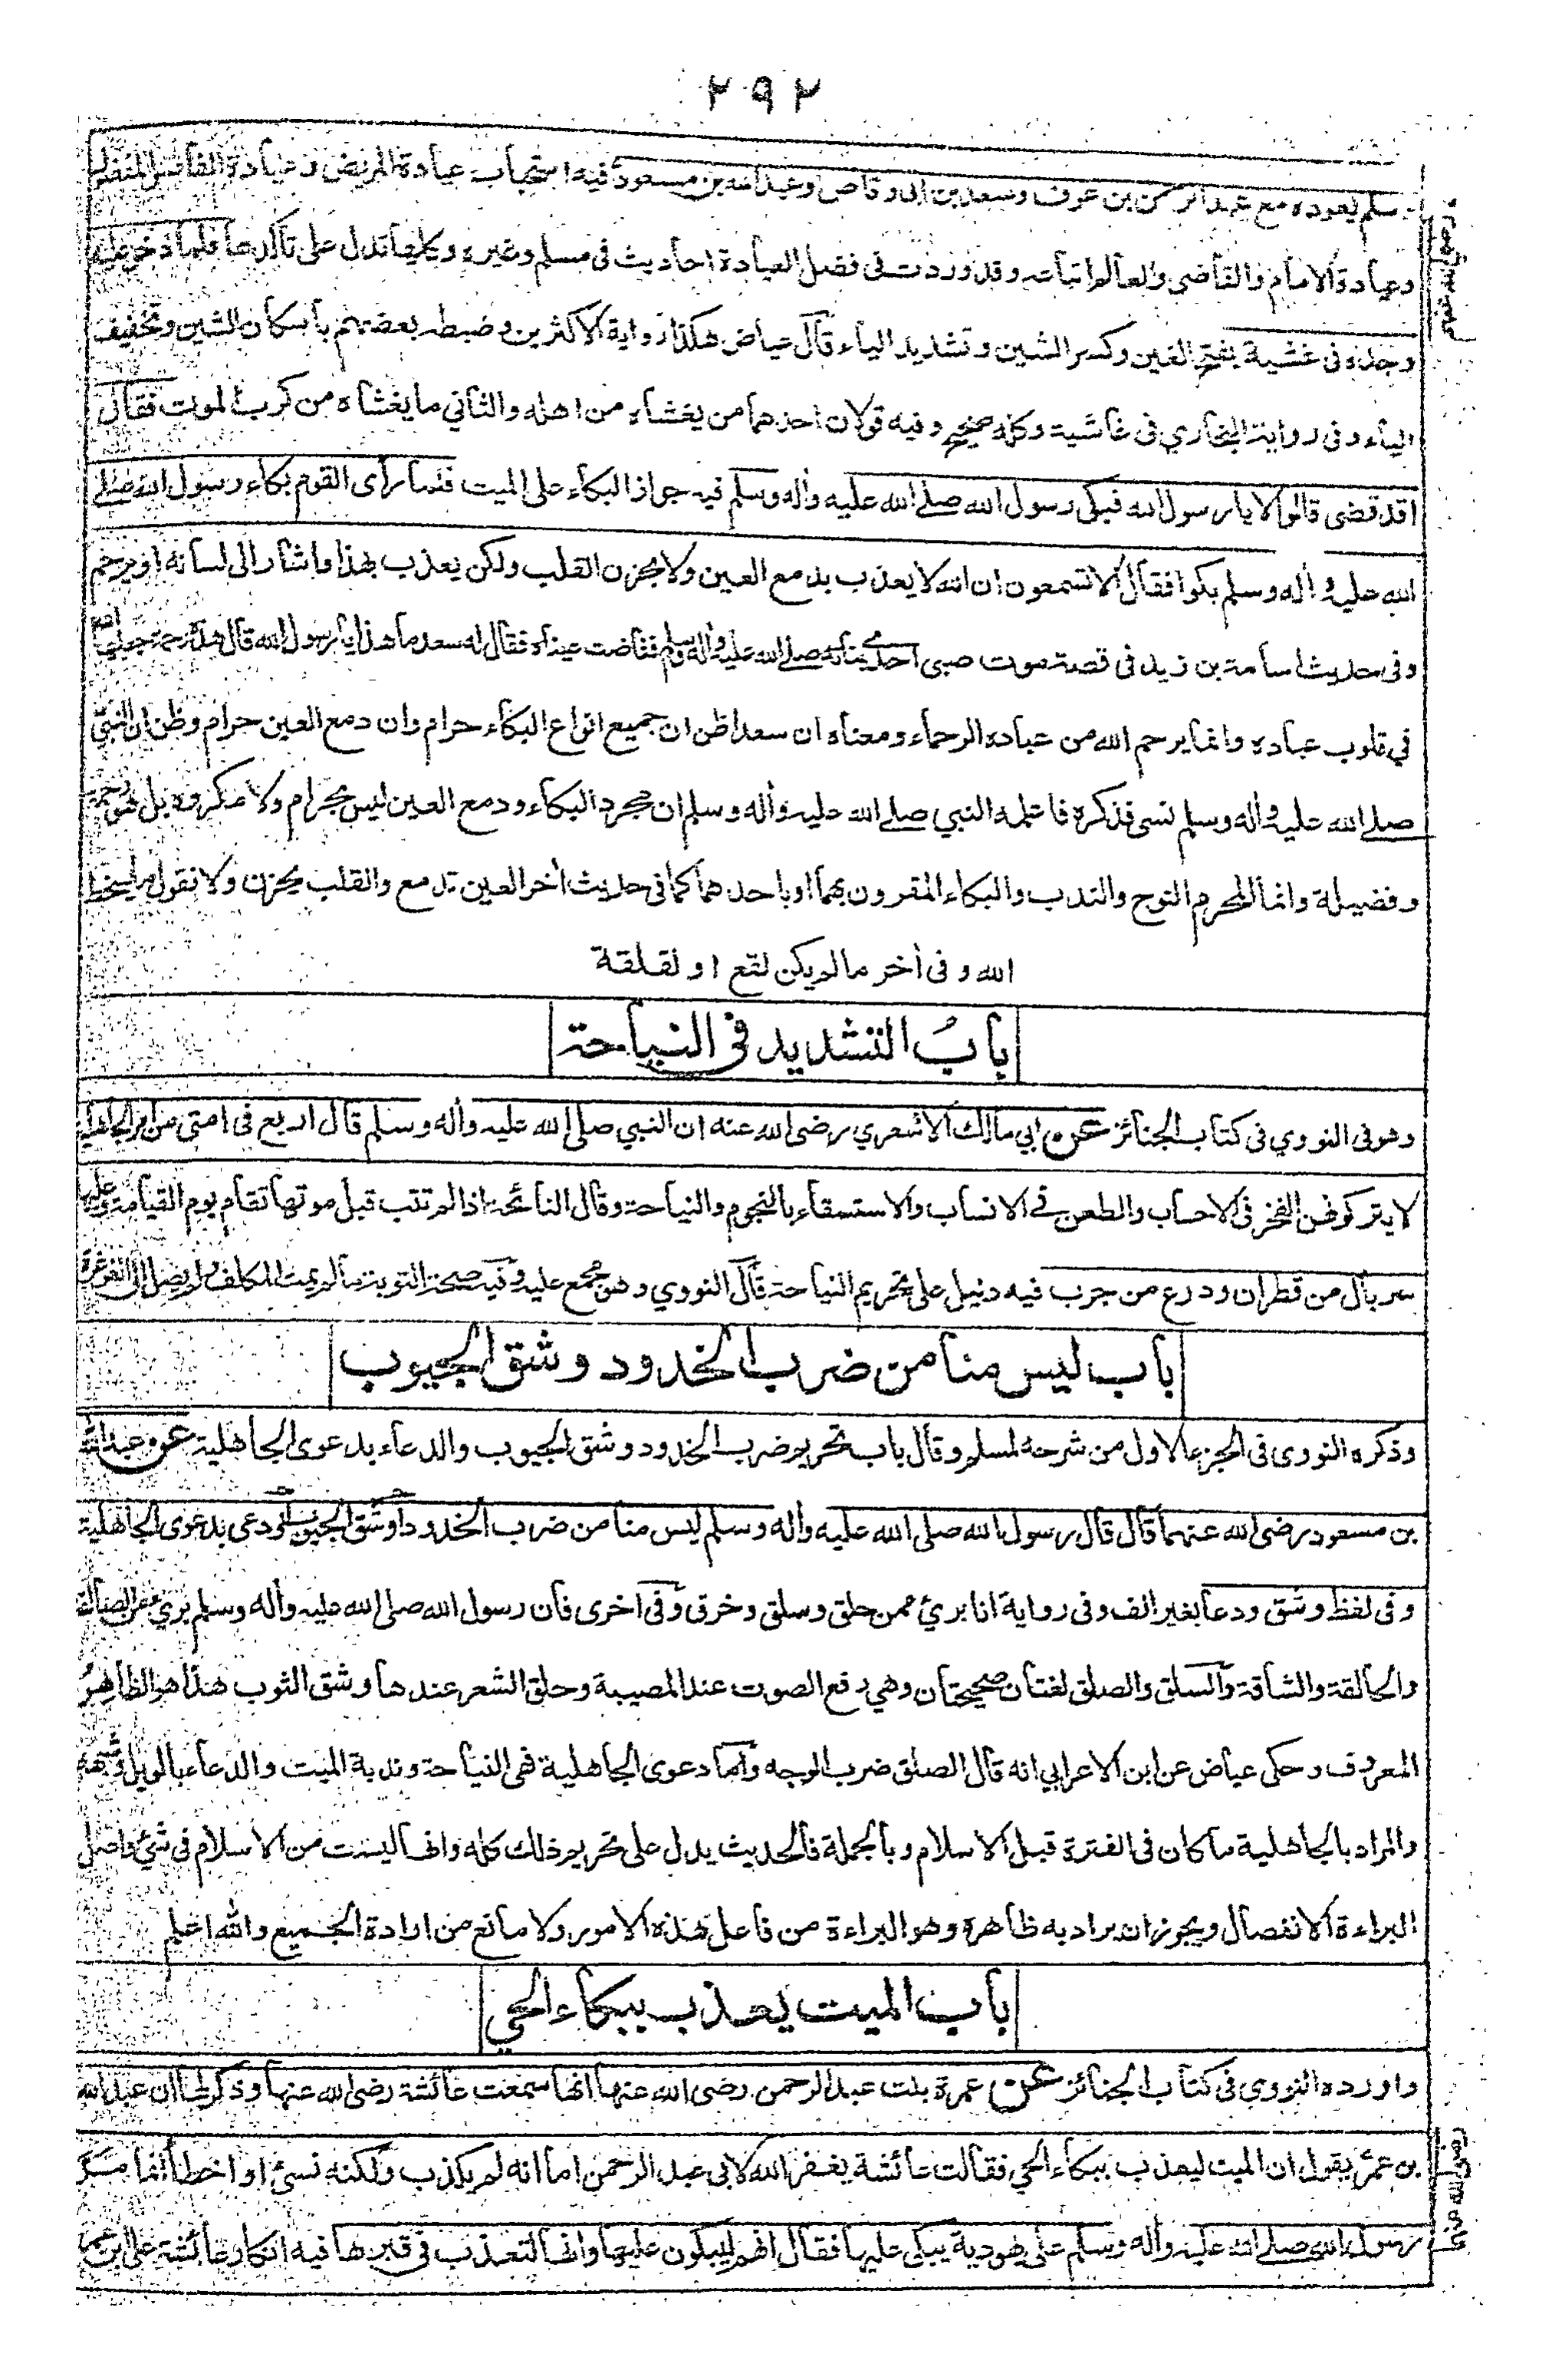 ٢٩٢
وسلم يعوده مع عبد الرحمن بن عوف وسعد بن ابى وقاص وعبد الله بن مسعود فيه استحباب عيادة المريض وعيادة الفاضل المفضول
وعيادة الامام والقاضى والعالم اتباعه وقد وردت فى فضل العيادة احاديث فى مسلم وغيره وكلها تدل على تأكدها فلما دخل عليه
وجده فى غشية بفتح الغين وكسر الشين وتشديد الياء قال عياض هكذا رواية الاكثرين وضبطه بعضهم بأسكان الشين وتخفيف
الياء وفى رواية البخاري فى غاشية وكله صحيح وفيه قولان احدهما من يغشاه من اهله والثاني ما يغشاه من كرب الموت فقال
اقد قضى قالوا لا يا رسول الله فبكى رسول الله صلى الله عليه وأله وسلم فيه جواز البكاء على الميت فلما رأى القوم بكاء رسول الله صلى
الله عليه وأله وسلم بكوا فقال الا تسمعون ان الله لا يعذب بدمع العين ولا بحزن القلب ولكن يعذب بهذا واشار الى لسانه او يرحم
وفى حديث اسامة بن زيد فى قصة موت صبى احدى بناته صلى الله عليه وأله وسلم ففاضت عيناه فقال له سعد ما هذا يا رسول الله قال هذه رحمة جعلها الله
في قلوب عباده وانما يرحم الله من عباده الرحماء ومعناه ان سعدا ظن ان جميع انواع البكاء حرام وان دمع العين حرام وظن ان النبي
صلى الله عليه وأله وسلم نسى فذكره فاعلمه النبي صلى الله عليه وأله وسلم ان مجرد البكاء ودمع العين ليس بحرام ولا مكروه بل هو رحمة
وفضيلة وانما المحرم النوح والندب والبكاء المقرون بهما او باحدهما كما فى حديث أخر العين تدمع والقلب يحزن ولا نقول ما يسخط
الله وفى أخر ما لم يكن لقع او لقلقة
باب التشديد فى النياحة
وهو فى النووي فى كتاب الجنائز عن ابي مالك الاشعري رضى الله عنه ان النبي صلى الله عليه وأله وسلم قال اربع فى امتى من امر الجاهلية
لا يتركونهن الفخر فى الاحساب والطعن في الانساب والاستسقاء بالنجوم والنياحة وقال النائحة اذا لم تتب قبل موتها تقام يوم القيامة وعليها
سربال من قطران ودرع من جرب فيه دليل على تحريم النياحة قال النووي وهو مجمع عليه وفيه صحة التوبة مالم يمت المكلف ولم يصل الى الغرغرة
باب ليس منا من ضرب الخدود وشق الجيوب
وذكره النووى فى الجزء الاول من شرحه لمسلم وقال باب تحريم ضرب الخدود وشق الجيوب والدعاء بدعوى الجاهلية عن عبد الله
بن مسعود رضى الله عنهما قال قال رسول الله صلى الله عليه وأله وسلم ليس منا من ضرب الخدود او شق الجيوب او دعى بدعوى الجاهلية
وفى لفظ وشق ودعا بغير الف وفى رواية انا بريئ ممن حلق وسلق وخرق وفى اخرى فان رسول الله صلى الله عليه وأله وسلم بري من الصالقة
والحالقة والشاقة والسلق والصلق لغتان صحيحتان وهي رفع الصوت عند المصيبة وحلق الشعر عندها وشق الثوب هذا هو الظاهر
المعروف وحكى عياض عن ابن الاعرابي انه قال الصلق ضرب الوجه واما دعوى الجاهلية فهى النياحة وندبة الميت والدعاء بالويل وشبهه
والمراد بالجاهلية ما كان فى الفترة قبل الاسلام وبالجملة فالحديث يدل على تحريم ذلك كله وانها ليست من الاسلام فى شئ واصل
البراءة الانفصال ويجوز ان يراد به ظاهره وهو البراءة من فاعل هذه الامور ولا مانع من ارادة الجميع والله اعلم
باب الميت يعذب ببكاء الحي
واورده النووي فى كتاب الجنائز عن عمرة بنت عبد الرحمن رضى الله عنها انها سمعت عائشة رضى الله عنها وذكر لها ان عبد الله
بن عمر يقول ان الميت ليعذب ببكاء الحي فقالت عائشة يغفر الله لابى عبد الرحمن اما انه لم يكذب ولكنه نسى او اخطأ انما مر
رسول الله صلى الله عليه وأله وسلم على يهودية يبكى عليها فقال انهم ليبكون عليها وانها لتعذب فى قبرها فيه انكار عائشة على ابن عمر